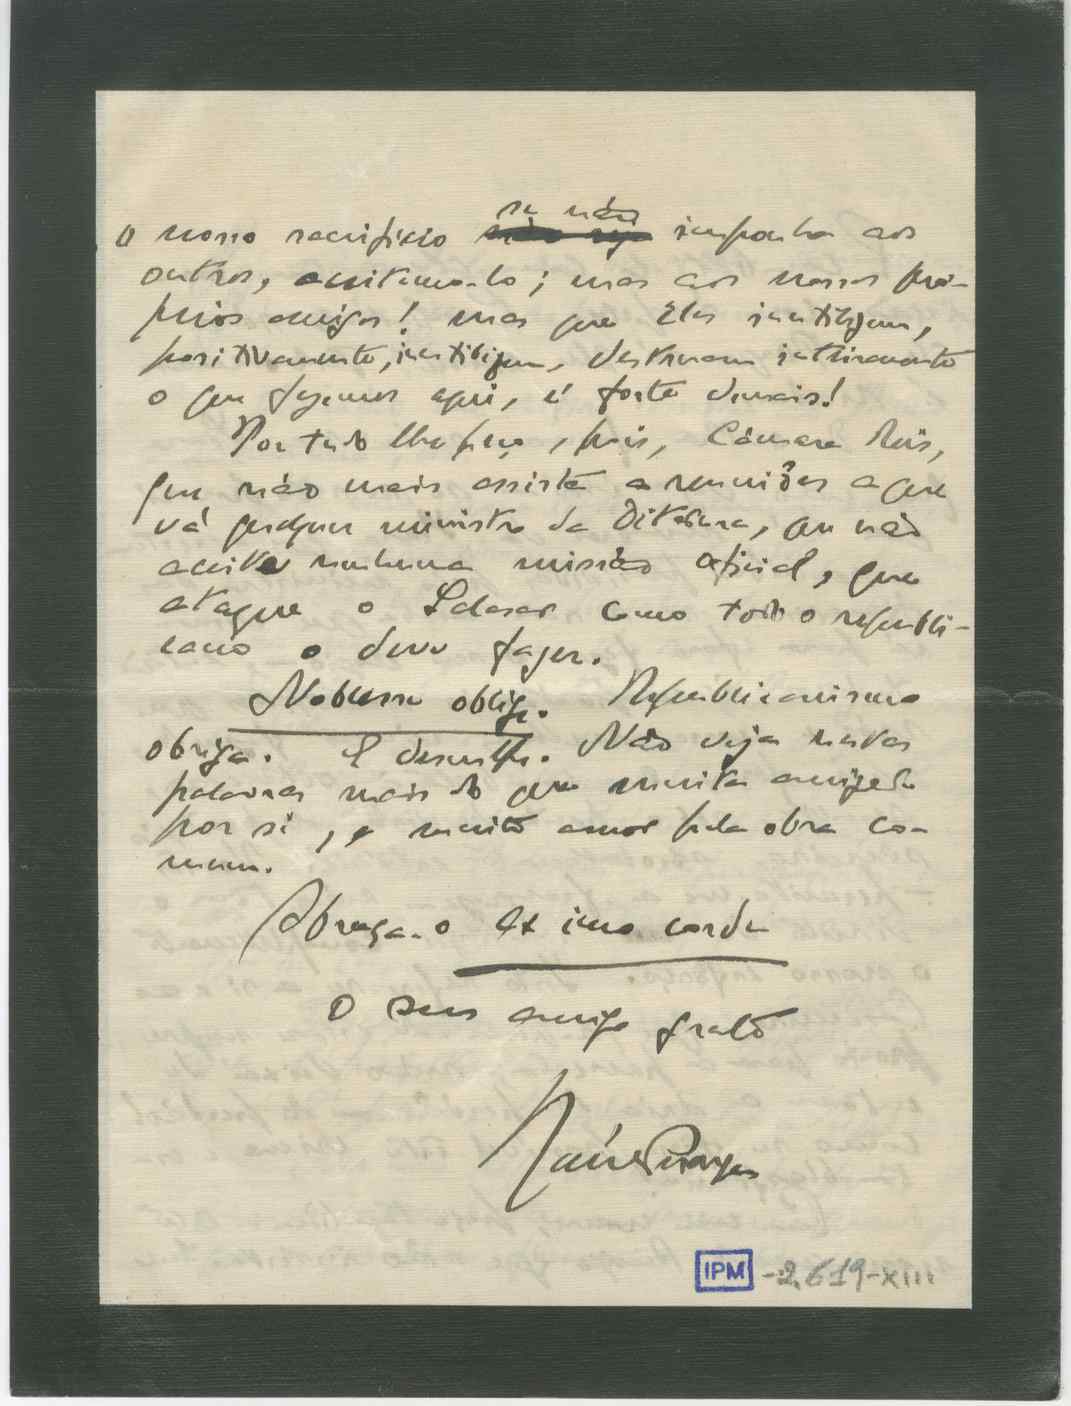 se não
O nosso sacrificio importa aos
outros, aceitemo-lo; mas aos nossos pro-
prios amigos! mas que Eles inutilizem,
positivamente, inutilizem, destruam inteiramente
o que fazemos aqui, é forte demais!
Por tudo lhe peço, pois, Câmara Reis,
que não mais assista a reuniões a que
vá qualquer ministro da Ditadura, que não
aceite nenhuma missão oficial, que
ataque o Salazar como todo o republi-
cano o deve fazer.
Noblesse oblige. Republicanismo
obriga. E desculpe. Não veja nestas
palavras mais do que muita amizade
por si, e muito amor pela obra co-
mum.
Abraça-o ex imo corde
O seu amigo grato
IPM -2.619-XIII